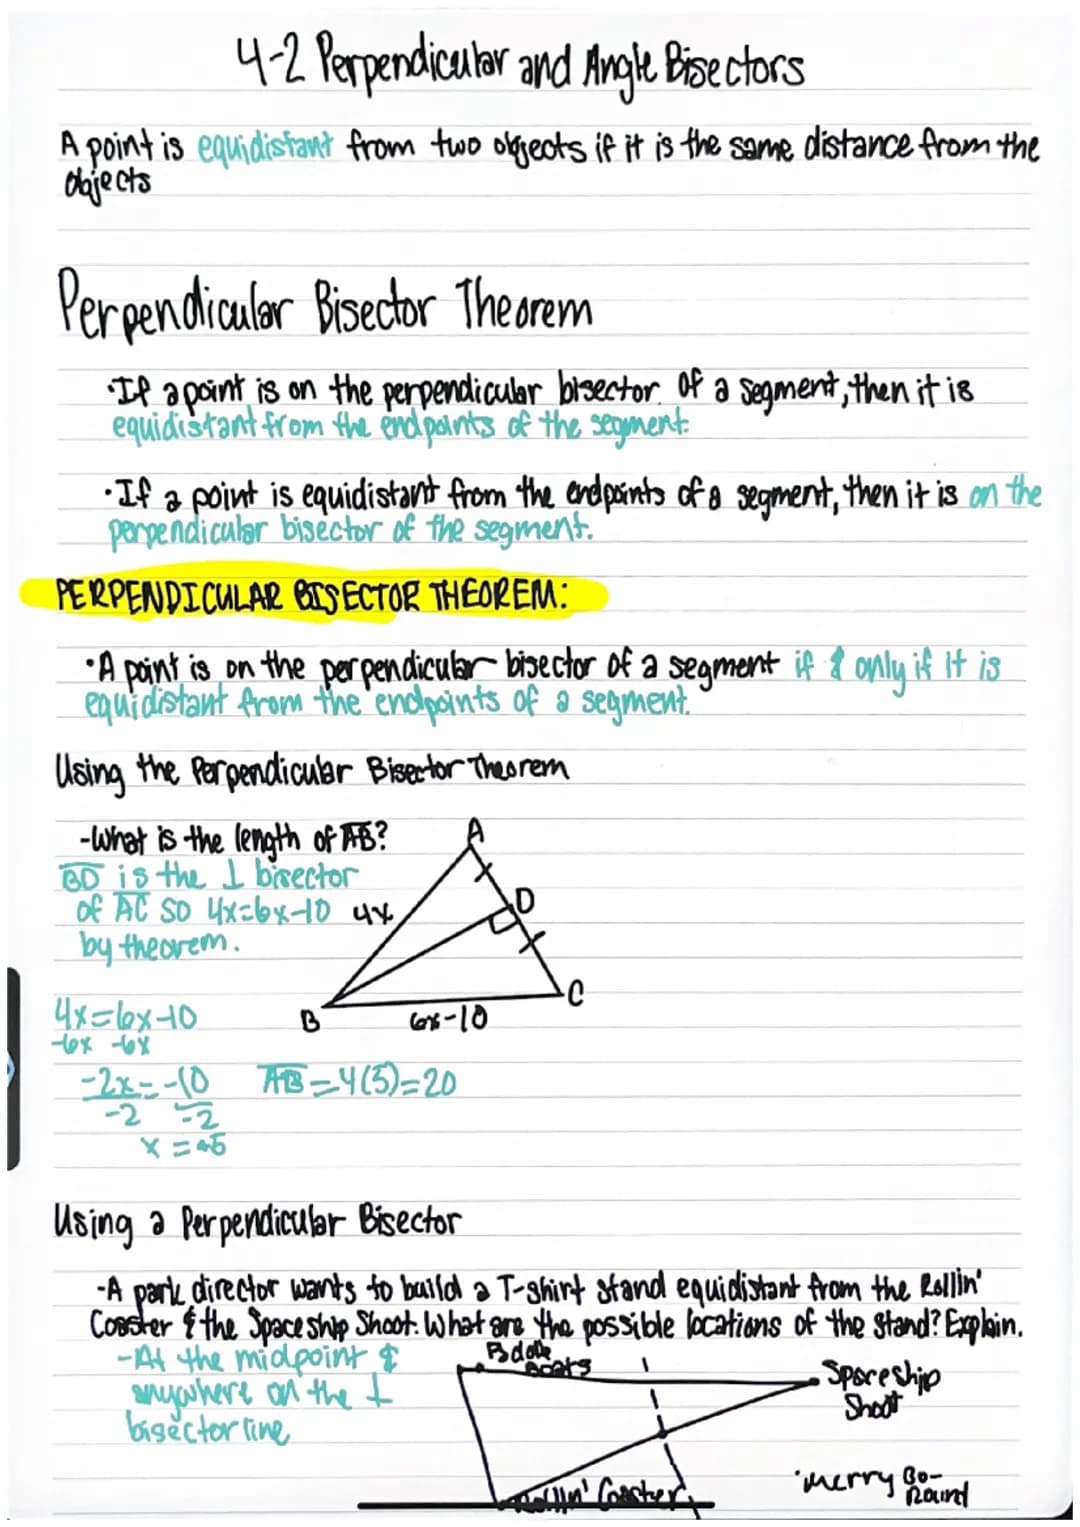 4-2 Perpendicular and Angle Bisectors
A point is equidistant from two objects if it is the same distance from the
objects
Perpendicular Bisector Theorem
•If a point is on the perpendicular bisector of a segment, then it is
equidistant from the endpoints of the segment.
•If a point is equidistant from the endpoints of a segment, then it is on the
perpendicular bisector of the segment.
PERPENDICULAR BISECTOR THEOREM:
•A point is on the perpendicular bisector of a segment if & only if it is
equidistant from the endpoints of a segment.
Using the Perpendicular Bisector Theorem
-What is the length of AB?
BD is the ⊥ bisector
of AC so 4x=6x-10
by theorem.
A
D
4x
C
B
6x-10
4x=6x-10
-6x -6x
-2x=-10
-2 -2
x = 5
AB=4(5)=20
Using a Perpendicular Bisector
-A park director wants to build a T-shirt stand equidistant from the Rollin'
Coaster & the Spaceship Shoot. What are the possible locations of the stand? Explain.
-At the midpoint &
anywhere on the ⊥
bisector line
Boats
Spaceship
Shoot
Rollin' Coaster
•Merry Go-
Round